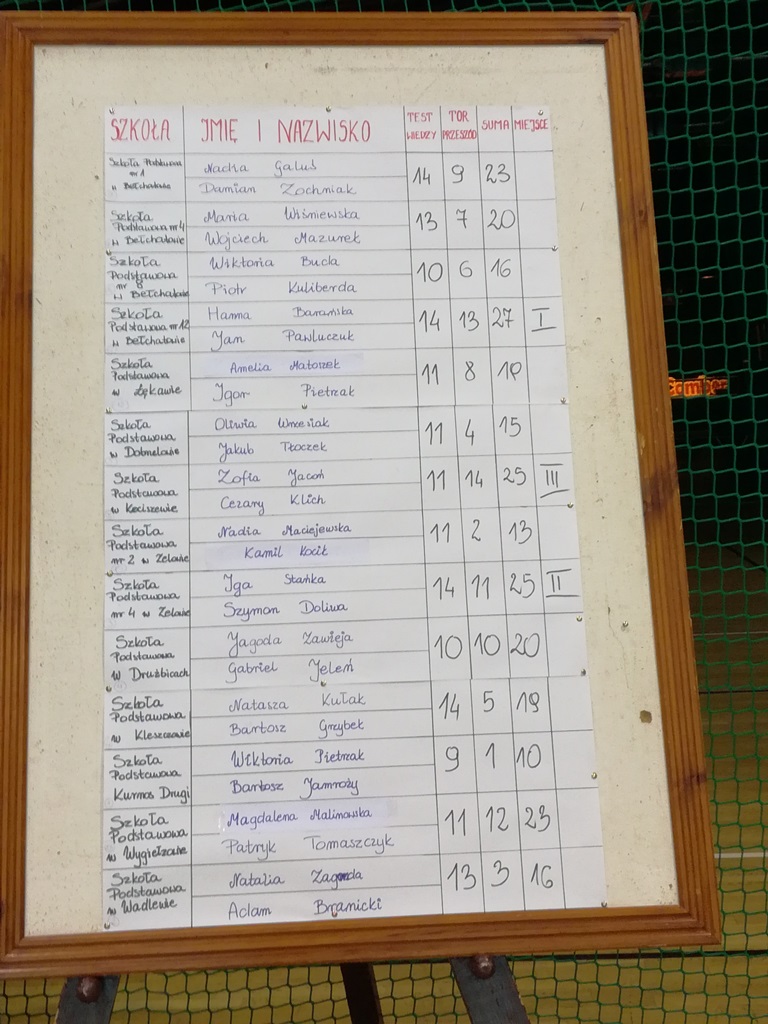 SZKOŁA IMIĘ I NAZWISKO TEST WIEDZY TOR PRZESZKÓD SUMA MIEJSCE
Szkoła Podstawowa nr 1 w Bełchatowie
Nadia Galuś
Damian Zochniak
14 9 23
Szkoła Podstawowa nr 4 w Bełchatowie
Maria Wiśniewska
Wojciech Mazurek
13 7 20
Szkoła Podstawowa nr 8 w Bełchatowie
Wiktoria Bucla
Piotr Kuliberda
10 6 16
Szkoła Podstawowa nr 12 w Bełchatowie
Hanna Barańska
Jan Pawluczuk
14 13 27 I
Szkoła Podstawowa w Łękawie
Amelia Matoszek
Igor Pietrzak
11 8 19
Szkoła Podstawowa w Dobrzelowie
Oliwia Wrzesiak
Jakub Tłoczek
11 4 15
Szkoła Podstawowa w Kociszewie
Zofia Jacoń
Cezary Klich
11 14 25 III
Szkoła Podstawowa nr 2 w Zelowie
Nadia Maciejewska
Kamil Kocik
11 2 13
Szkoła Podstawowa nr 4 w Zelowie
Iga Stańka
Szymon Doliwa
14 11 25 II
Szkoła Podstawowa w Drużbicach
Jagoda Zawieja
Gabriel Jeleń
10 10 20
Szkoła Podstawowa w Kleszczowie
Natasza Kułak
Bartosz Grzybek
14 5 19
Szkoła Podstawowa Kurnos Drugi
Wiktoria Pietrzak
Bartosz Jamroży
9 1 10
Szkoła Podstawowa w Wygiełzowie
Magdalena Malinowska
Patryk Tomaszczyk
11 12 23
Szkoła Podstawowa w Wadlewie
Natalia Zagorda
Adam Branicki
13 3 16